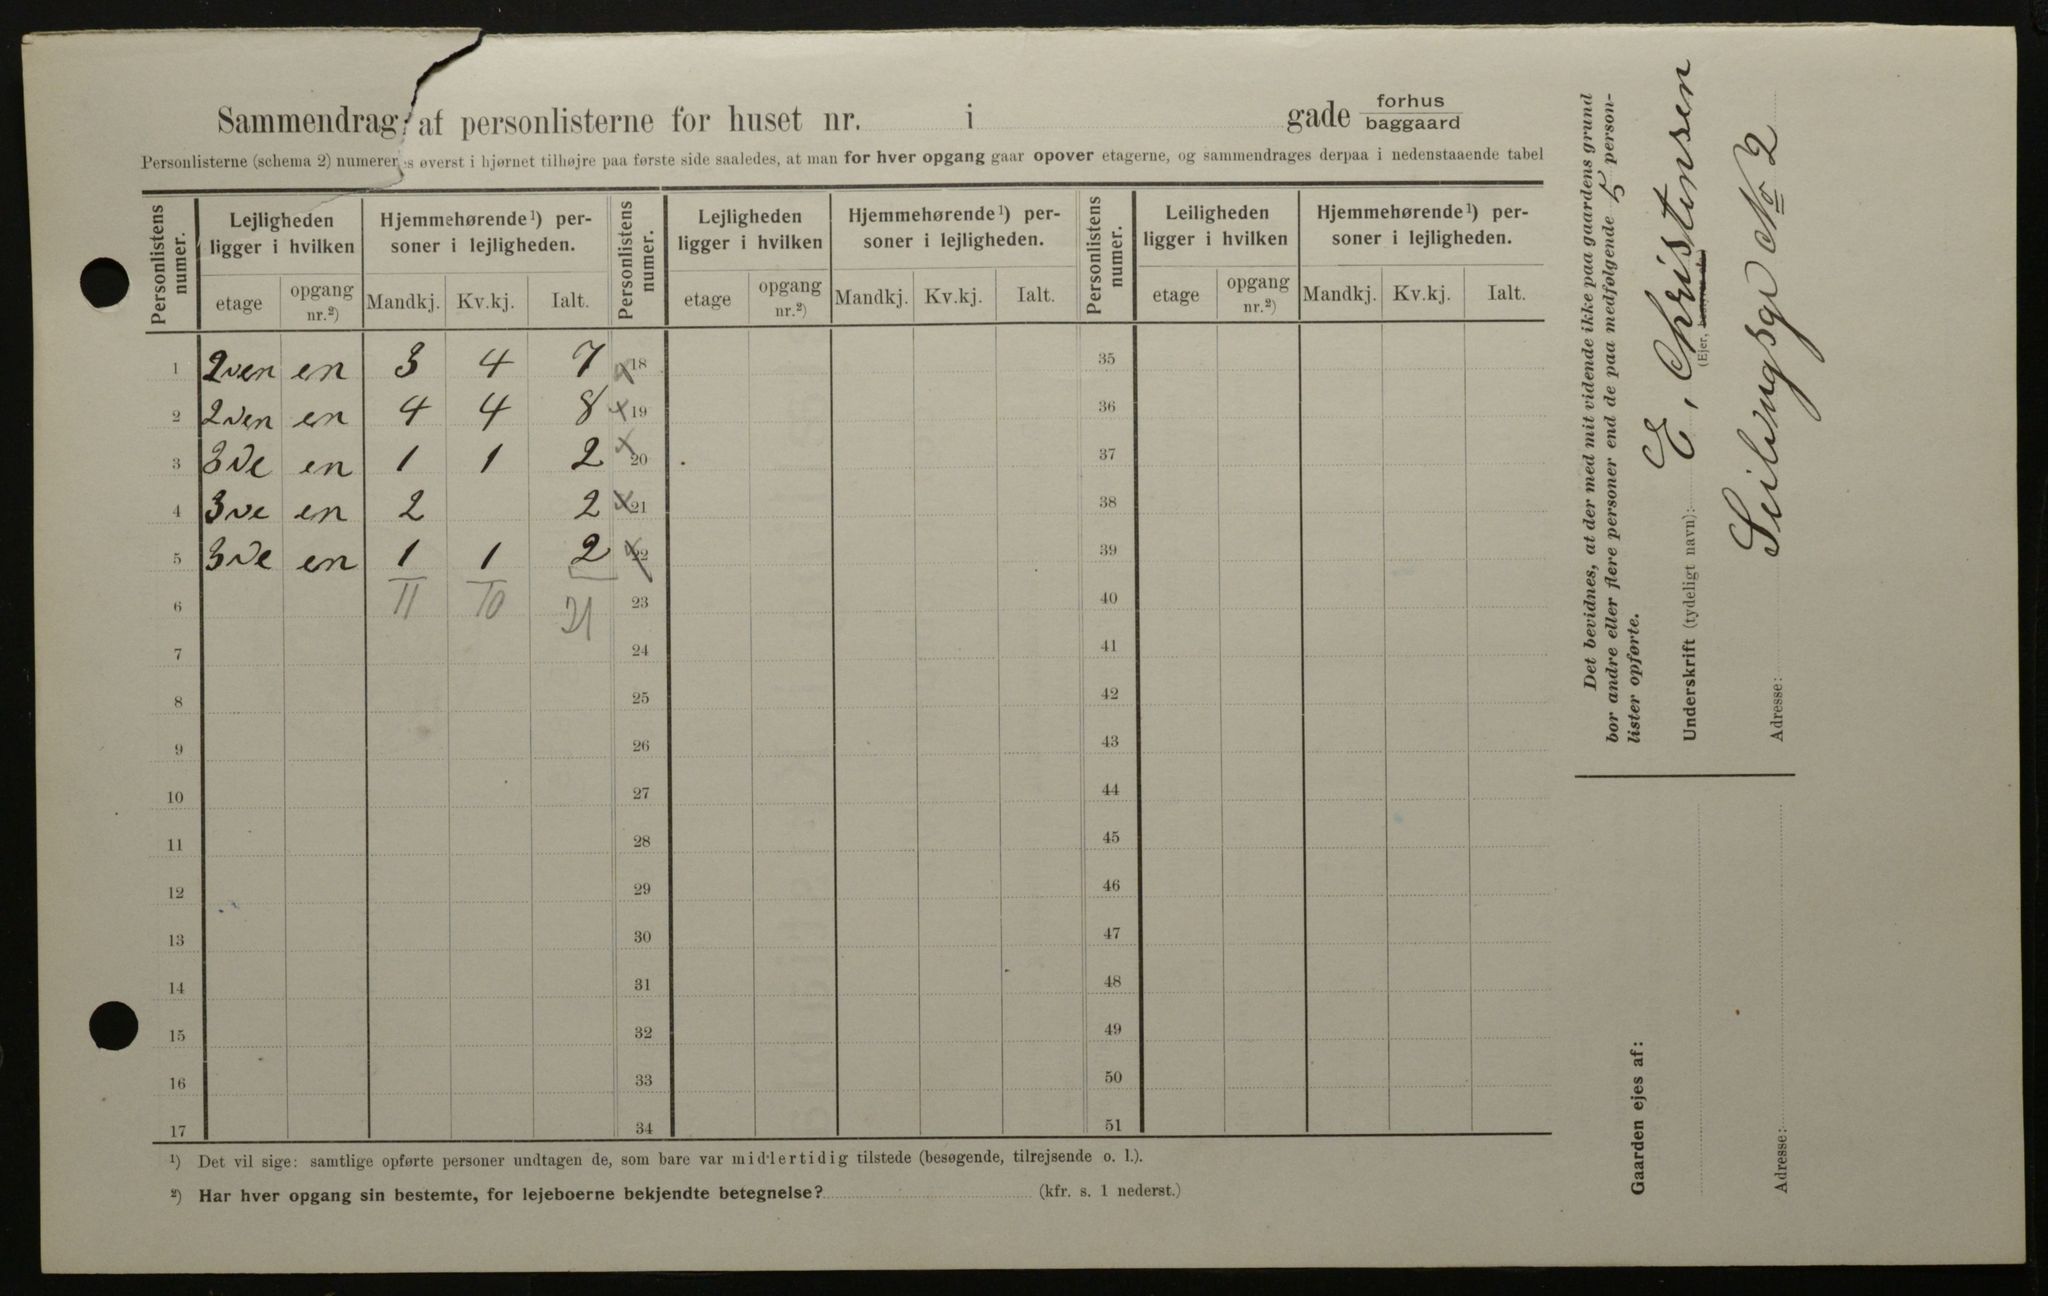 Sammendrag af personlisterne for huset nr. i gade forhus baggaard
Personlisterne (schema 2) numereres øverst i hjørnet tilhøjre paa første side saaledes, at man for hver opgang gaar opover etagerne, og sammendrages derpaa i nedenstaaende tabel
Personlistens numer. Lejligheden ligger i hvilken Hjemmehørende¹) personer i lejligheden. Personlistens numer. Lejligheden ligger i hvilken Hjemmehørende¹) personer i lejligheden. Personlistens numer. Leiligheden ligger i hvilken Hjemmehørende¹) personer i lejligheden.
etage opgang nr.²) Mandkj. Kv.kj. Ialt. etage opgang nr.²) Mandkj. Kv.kj. Ialt. etage opgang nr.²) Mandkj. Kv.kj. Ialt.
1 2den en 3 4 7 18 35
2 2den en 4 4 8 19 36
3 3de en 1 1 2 20 37
4 3de en 2 2 21 38
5 3de en 1 1 2 22 39
6 11 10 21 23 40
7 24 41
8 25 42
9 26 43
10 27 44
11 28 45
12 29 46
13 30 47
14 31 48
15 32 49
16 33 50
17 34 51
¹) Det vil sige: samtlige opførte personer undtagen de, som bare var midlertidig tilstede (besøgende, tilrejsende o. l.).
²) Har hver opgang sin bestemte, for lejeboerne bekjendte betegnelse? (kfr. s. 1 nederst.)
Det bevidnes, at der med mit vidende ikke paa gaardens grund
bor andre eller flere personer end de paa medfølgende 5 person-
lister opførte.
E. Christensen
Underskrift (tydeligt navn):
(Ejer,
Adresse: No 2
Gaarden ejes af:
Adresse: